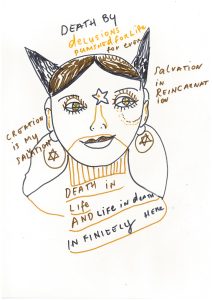 DEATH BY
delusions
PUNISHED FOR Life
for ever
SALVATION
IN
REINCARNAT
ION
CREATION
IS MY
SALVATION
DEATH IN
Life
AND Life IN death
INFINITELY HERE